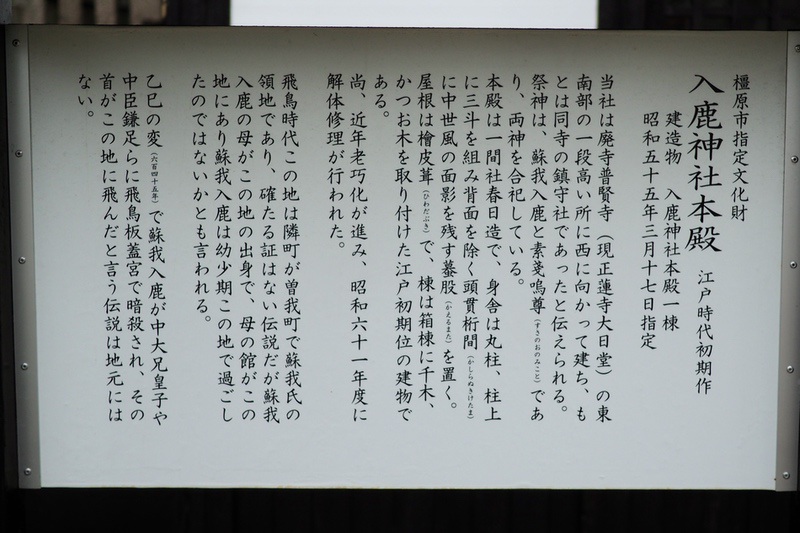 橿原市指定文化財
入鹿神社本殿　江戸時代初期作
建造物　入鹿神社本殿一棟
昭和五十五年三月十七日指定
当社は廃寺普賢寺（現正蓮寺大日堂）の東
南部の一段高い所に西に向かって建ち、も
とは同寺の鎮守社であったと伝えられる。
祭神は、蘇我入鹿と素戔嗚尊（すさのおのみこと）であ
り、両神を合祀している。
本殿は一間社春日造で、身舎は丸柱、柱上
に三斗を組み背面を除く頭貫桁間（かしらぬきけたま）
に中世風の面影を残す蟇股（かえるまた）を置く。
屋根は檜皮葺（ひわだぶき）で、棟は箱棟に千木、
かつお木を取り付けた江戸初期位の建物で
ある。
尚、近年老巧化が進み、昭和六十一年度に
解体修理が行われた。
飛鳥時代この地は隣町が曽我町で蘇我氏の
領地であり、確たる証はない伝説だが蘇我
入鹿の母がこの地の出身で、母の館がこの
地にあり蘇我入鹿は幼少期この地で過ごし
たのではないかとも言われる。
乙巳の変（六百四十五年）で蘇我入鹿が中大兄皇子や
中臣鎌足らに飛鳥板蓋宮で暗殺され、その
首がこの地に飛んだと言う伝説は地元には
ない。